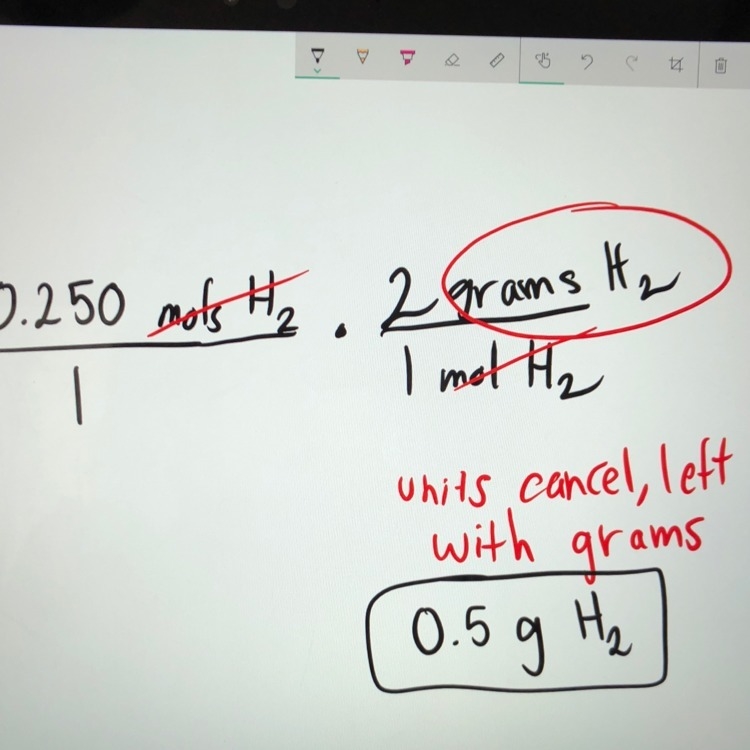 0.250 mols H₂ · 2 grams H₂
1 1 mol H₂
units cancel, left
with grams
0.5 g H₂